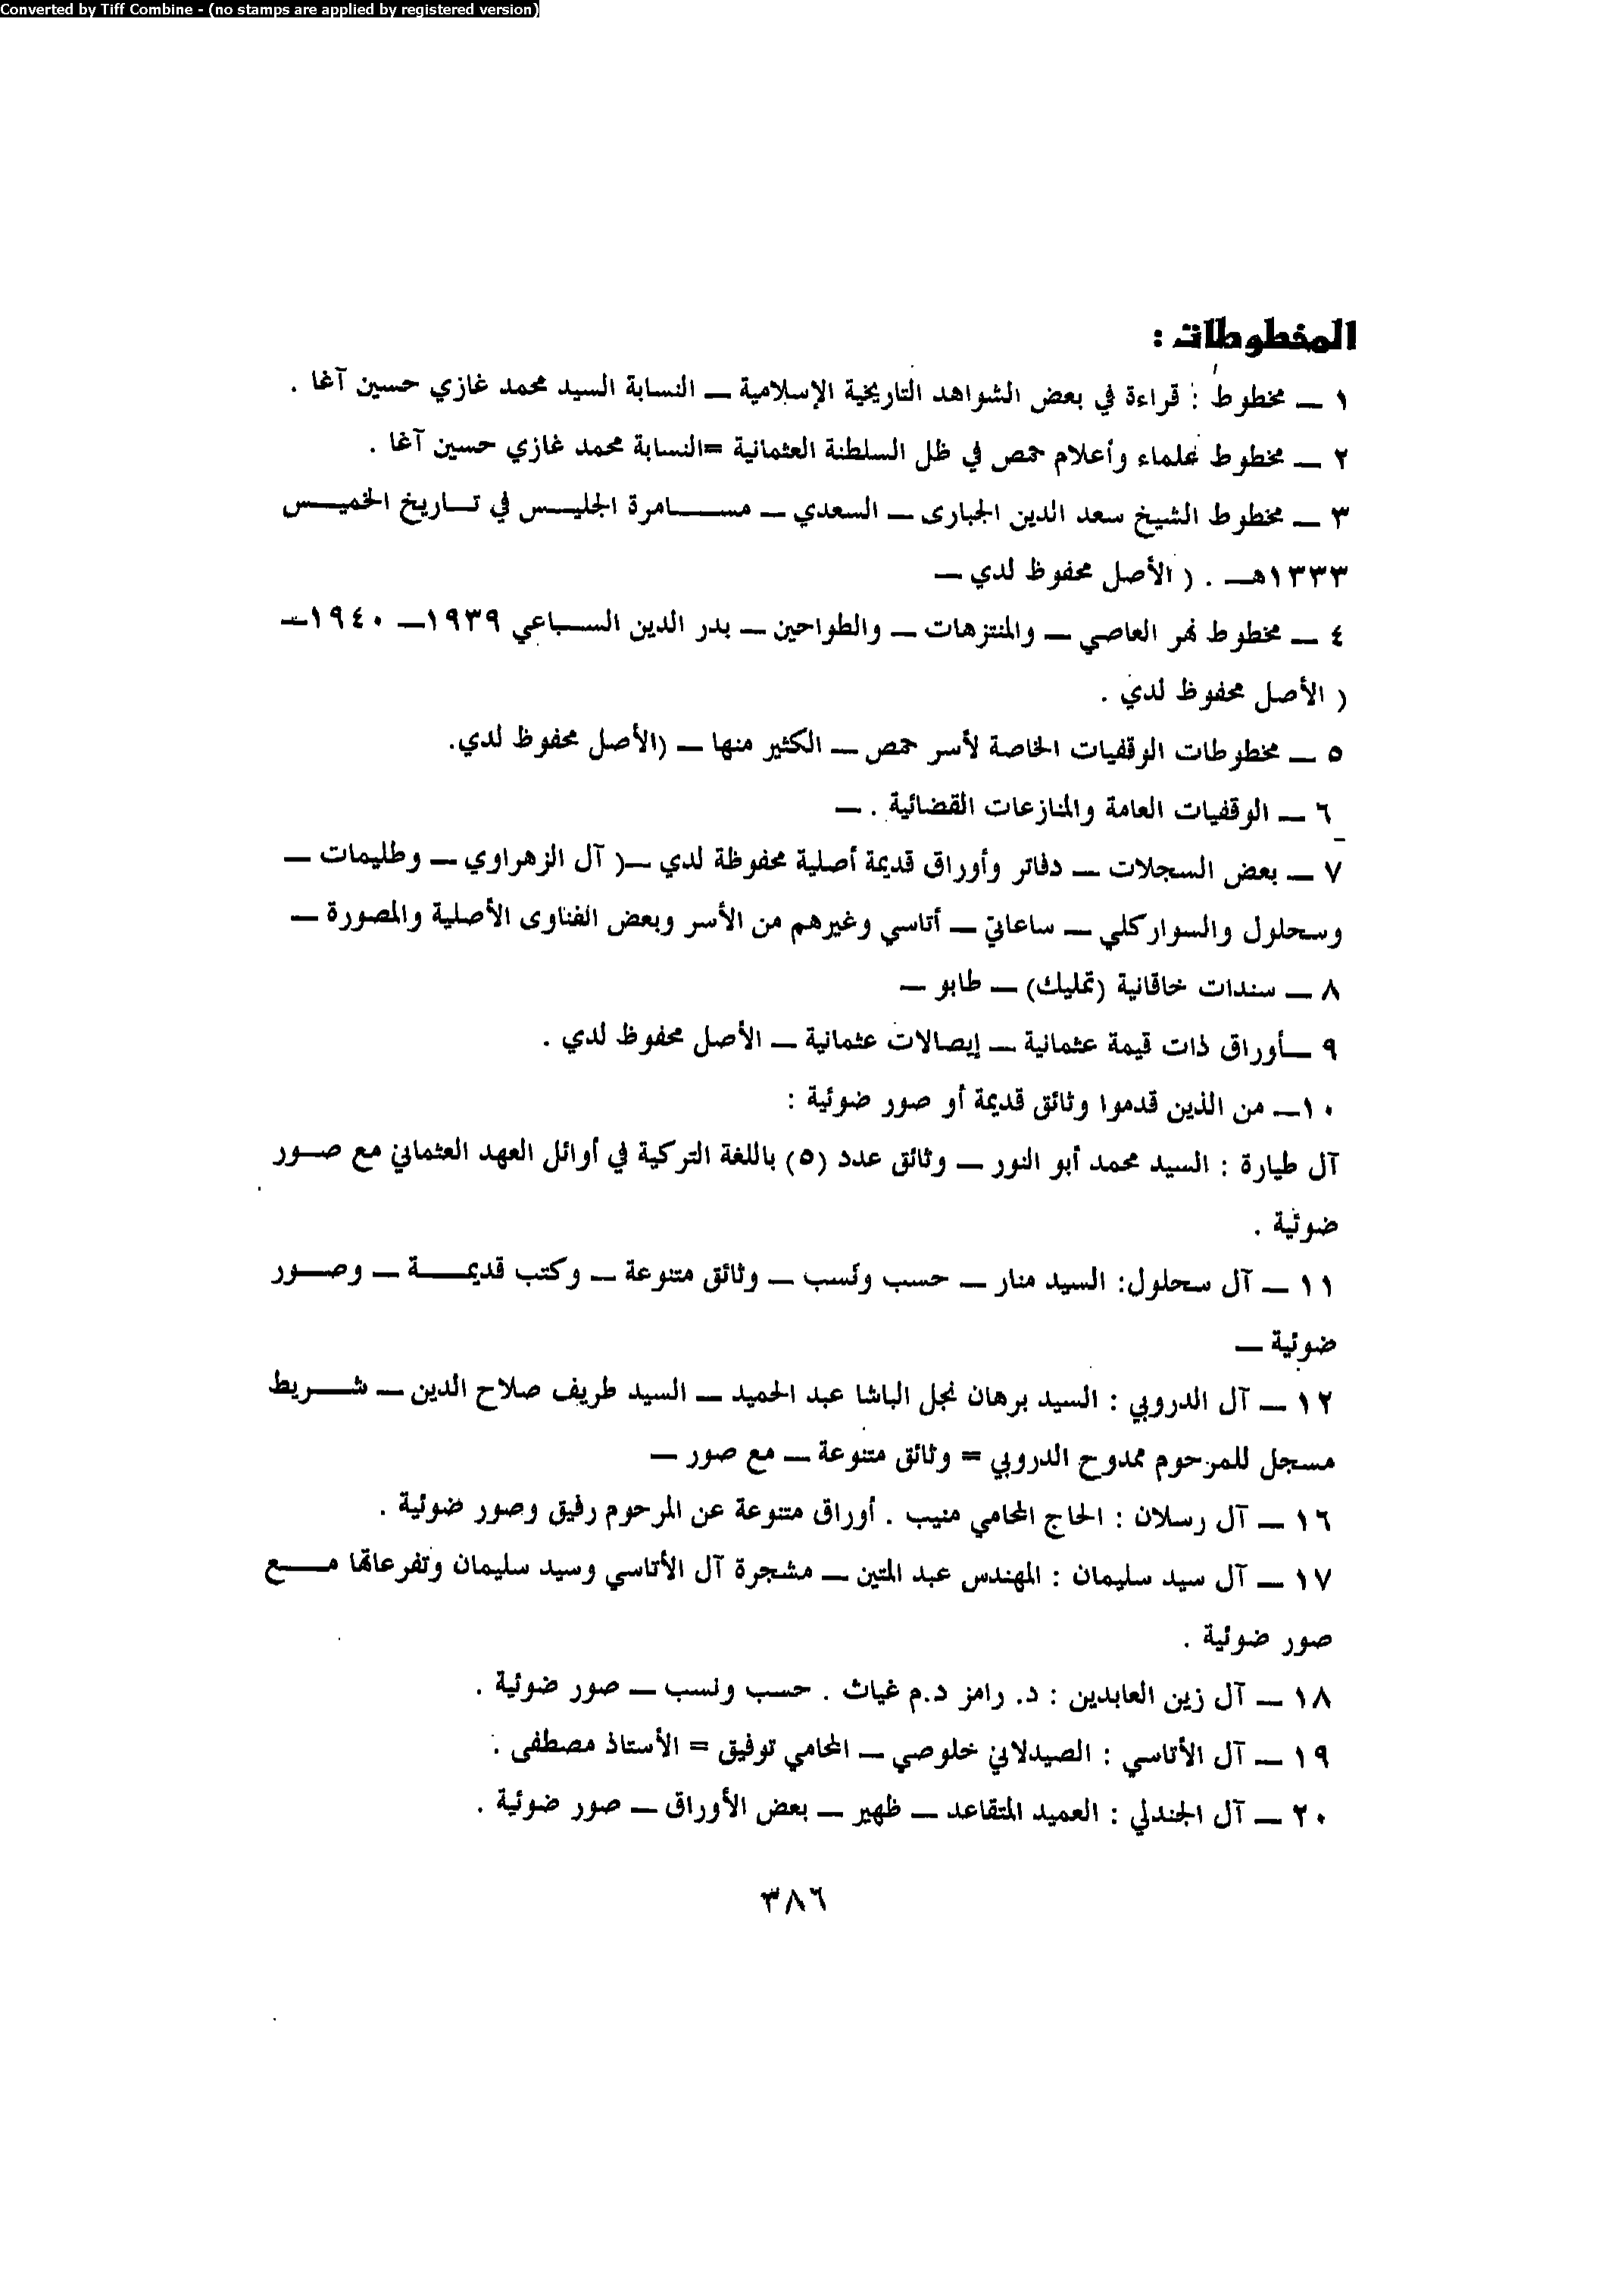 Converted by Tiff Combine - (no stamps are applied by registered version)
المخطوطات :
١ – مخطوط : قراءة في بعض الشواهد التاريخية الإسلامية – النسابة السيد محمد غازي حسين آغا .
٢ – مخطوط علماء وأعلام حمص في ظل السلطنة العثمانية =النسابة محمد غازي حسين آغا .
٣ – مخطوط الشيخ سعد الدين الجبارى – السعدي – مسامرة الجليس في تاريخ الخميس
١٣٣٣هـ . ( الأصل محفوظ لدي –
٤ – مخطوط نهر العاصي – والمنتزهات – والطواحين – بدر الدين السباعي ١٩٣٩– ١٩٤٠–
( الأصل محفوظ لدي .
٥ – مخطوطات الوقفيات الخاصة لأسر حمص – الكثير منها – (الأصل محفوظ لدي.
٦ – الوقفيات العامة والمنازعات القضائية . –
٧ – بعض السجلات – دفاتر وأوراق قديمة أصلية محفوظة لدي –( آل الزهراوي – وطليمات –
وسحلول والسواركلي – ساعاتي – أتاسي وغيرهم من الأسر وبعض الفتاوى الأصلية والمصورة –
٨ – سندات خاقانية (تمليك) – طابو –
٩ –أوراق ذات قيمة عثمانية – إيصالات عثمانية – الأصل محفوظ لدي .
١٠– من الذين قدموا وثائق قديمة أو صور ضوئية :
آل طيارة : السيد محمد أبو النور – وثائق عدد (٥) باللغة التركية في أوائل العهد العثماني مع صور
ضوئية .
١١ – آل سحلول: السيد منار – حسب ونسب – وثائق متنوعة – وكتب قديمة – وصور
ضوئية –
١٢ – آل الدروبي : السيد برهان نجل الباشا عبد الحميد – السيد طريف صلاح الدين – شريط
مسجل للمرحوم ممدوح الدروبي = وثائق متنوعة – مع صور –
١٦ – آل رسلان : الحاج المحامي منيب . أوراق متنوعة عن المرحوم رفيق وصور ضوئية .
١٧ – آل سيد سليمان : المهندس عبد المتين – مشجرة آل الأتاسي وسيد سليمان وتفرعاتها مع
صور ضوئية .
١٨ – آل زين العابدين : د. رامز د.م غياث . حسب ونسب – صور ضوئية .
١٩ – آل الأتاسي : الصيدلاني خلوصي – المحامي توفيق = الأستاذ مصطفى .
٢٠ – آل الجندلي : العميد المتقاعد – ظهير – بعض الأوراق – صور ضوئية .
٣٨٦